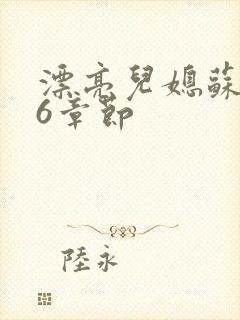 漂亮兒媳蘇
6章節
陸永